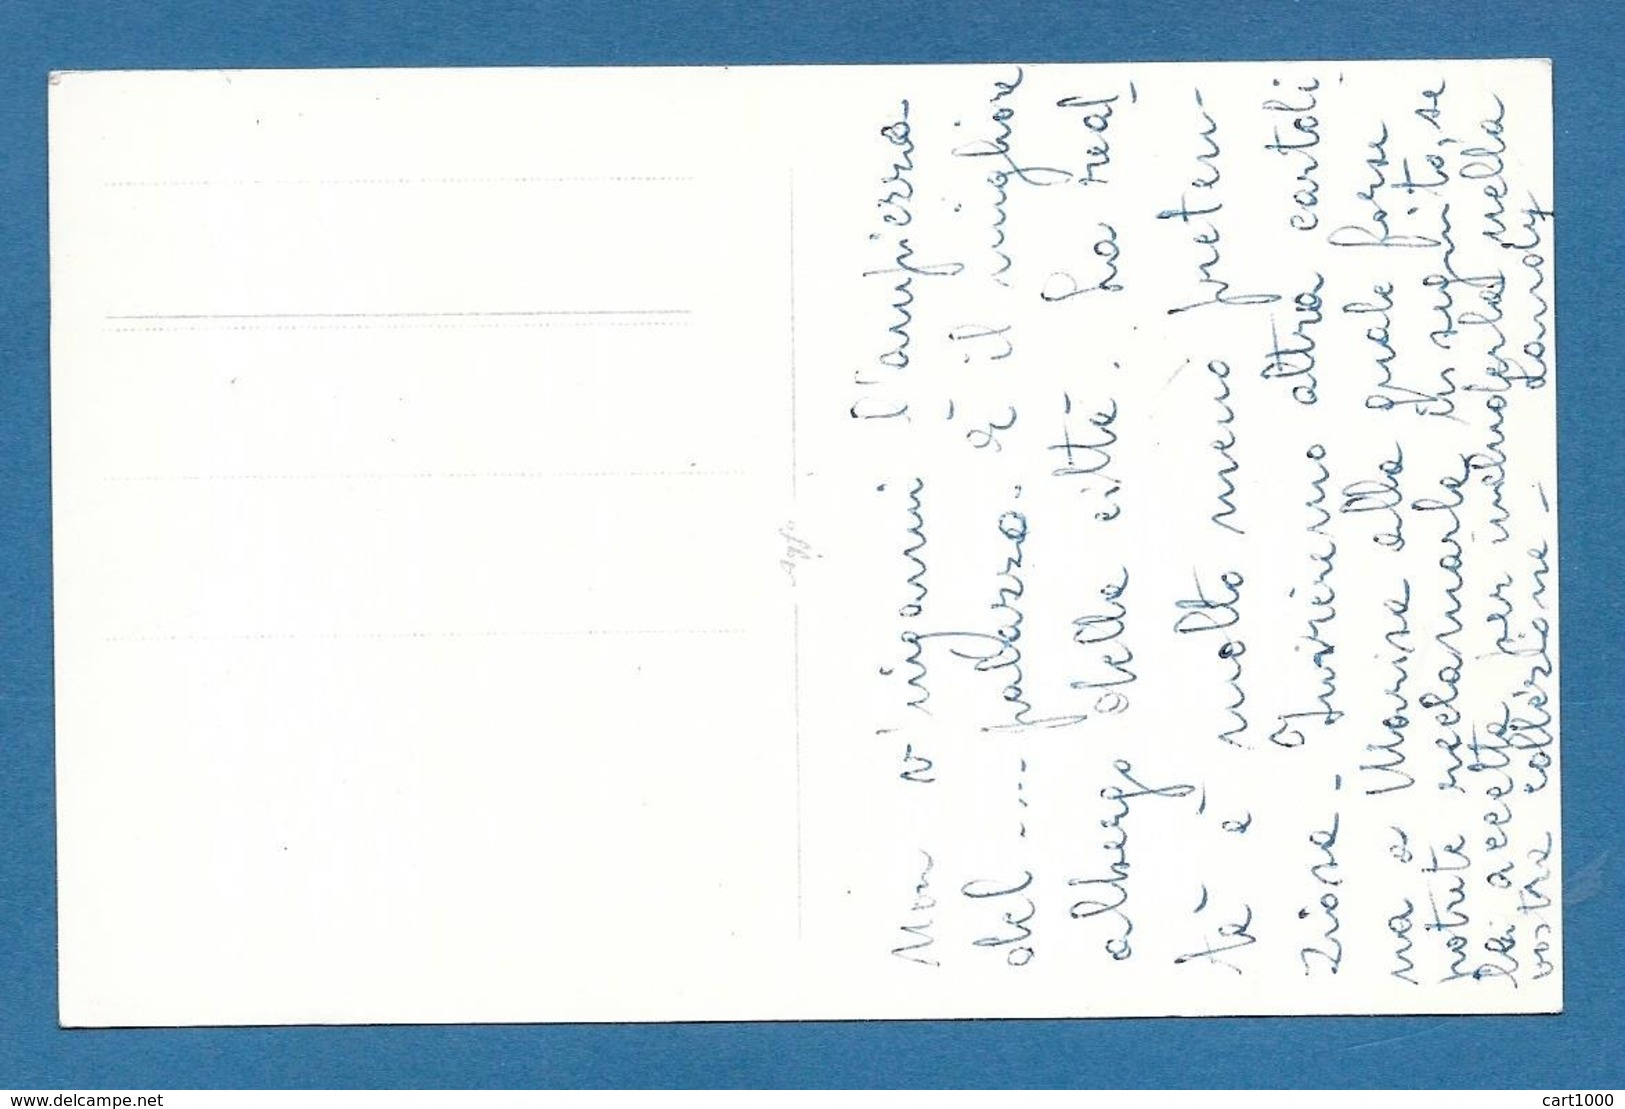 Non v'inganni l'ampiezza
del .... palazzo. è il migliore
albergo della città. La real-
tà è molto meno preten-
ziosa - Invieremo altra cartoli-
na a Marisa alla quale forse
potrete reclamarla, in seguito, se
lei accetta, per includerla nella
vostra collezione - Landy
Agfa
www.delcampe.net
cart1000